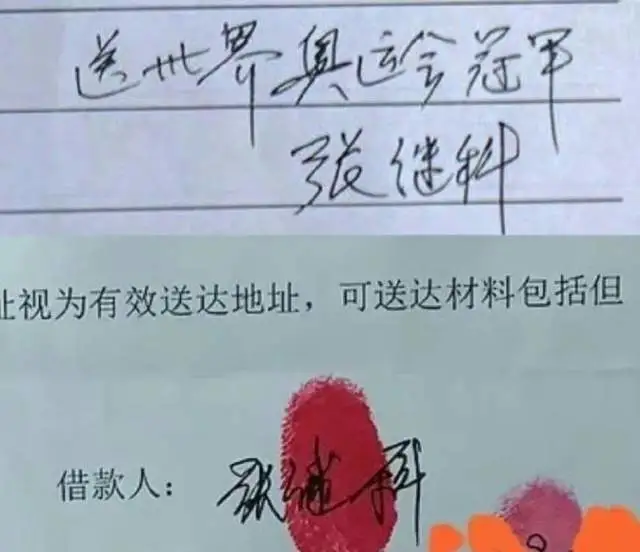 送世界奥运会冠军
张继科
址视为有效送达地址，可送达材料包括但
借款人：张继科